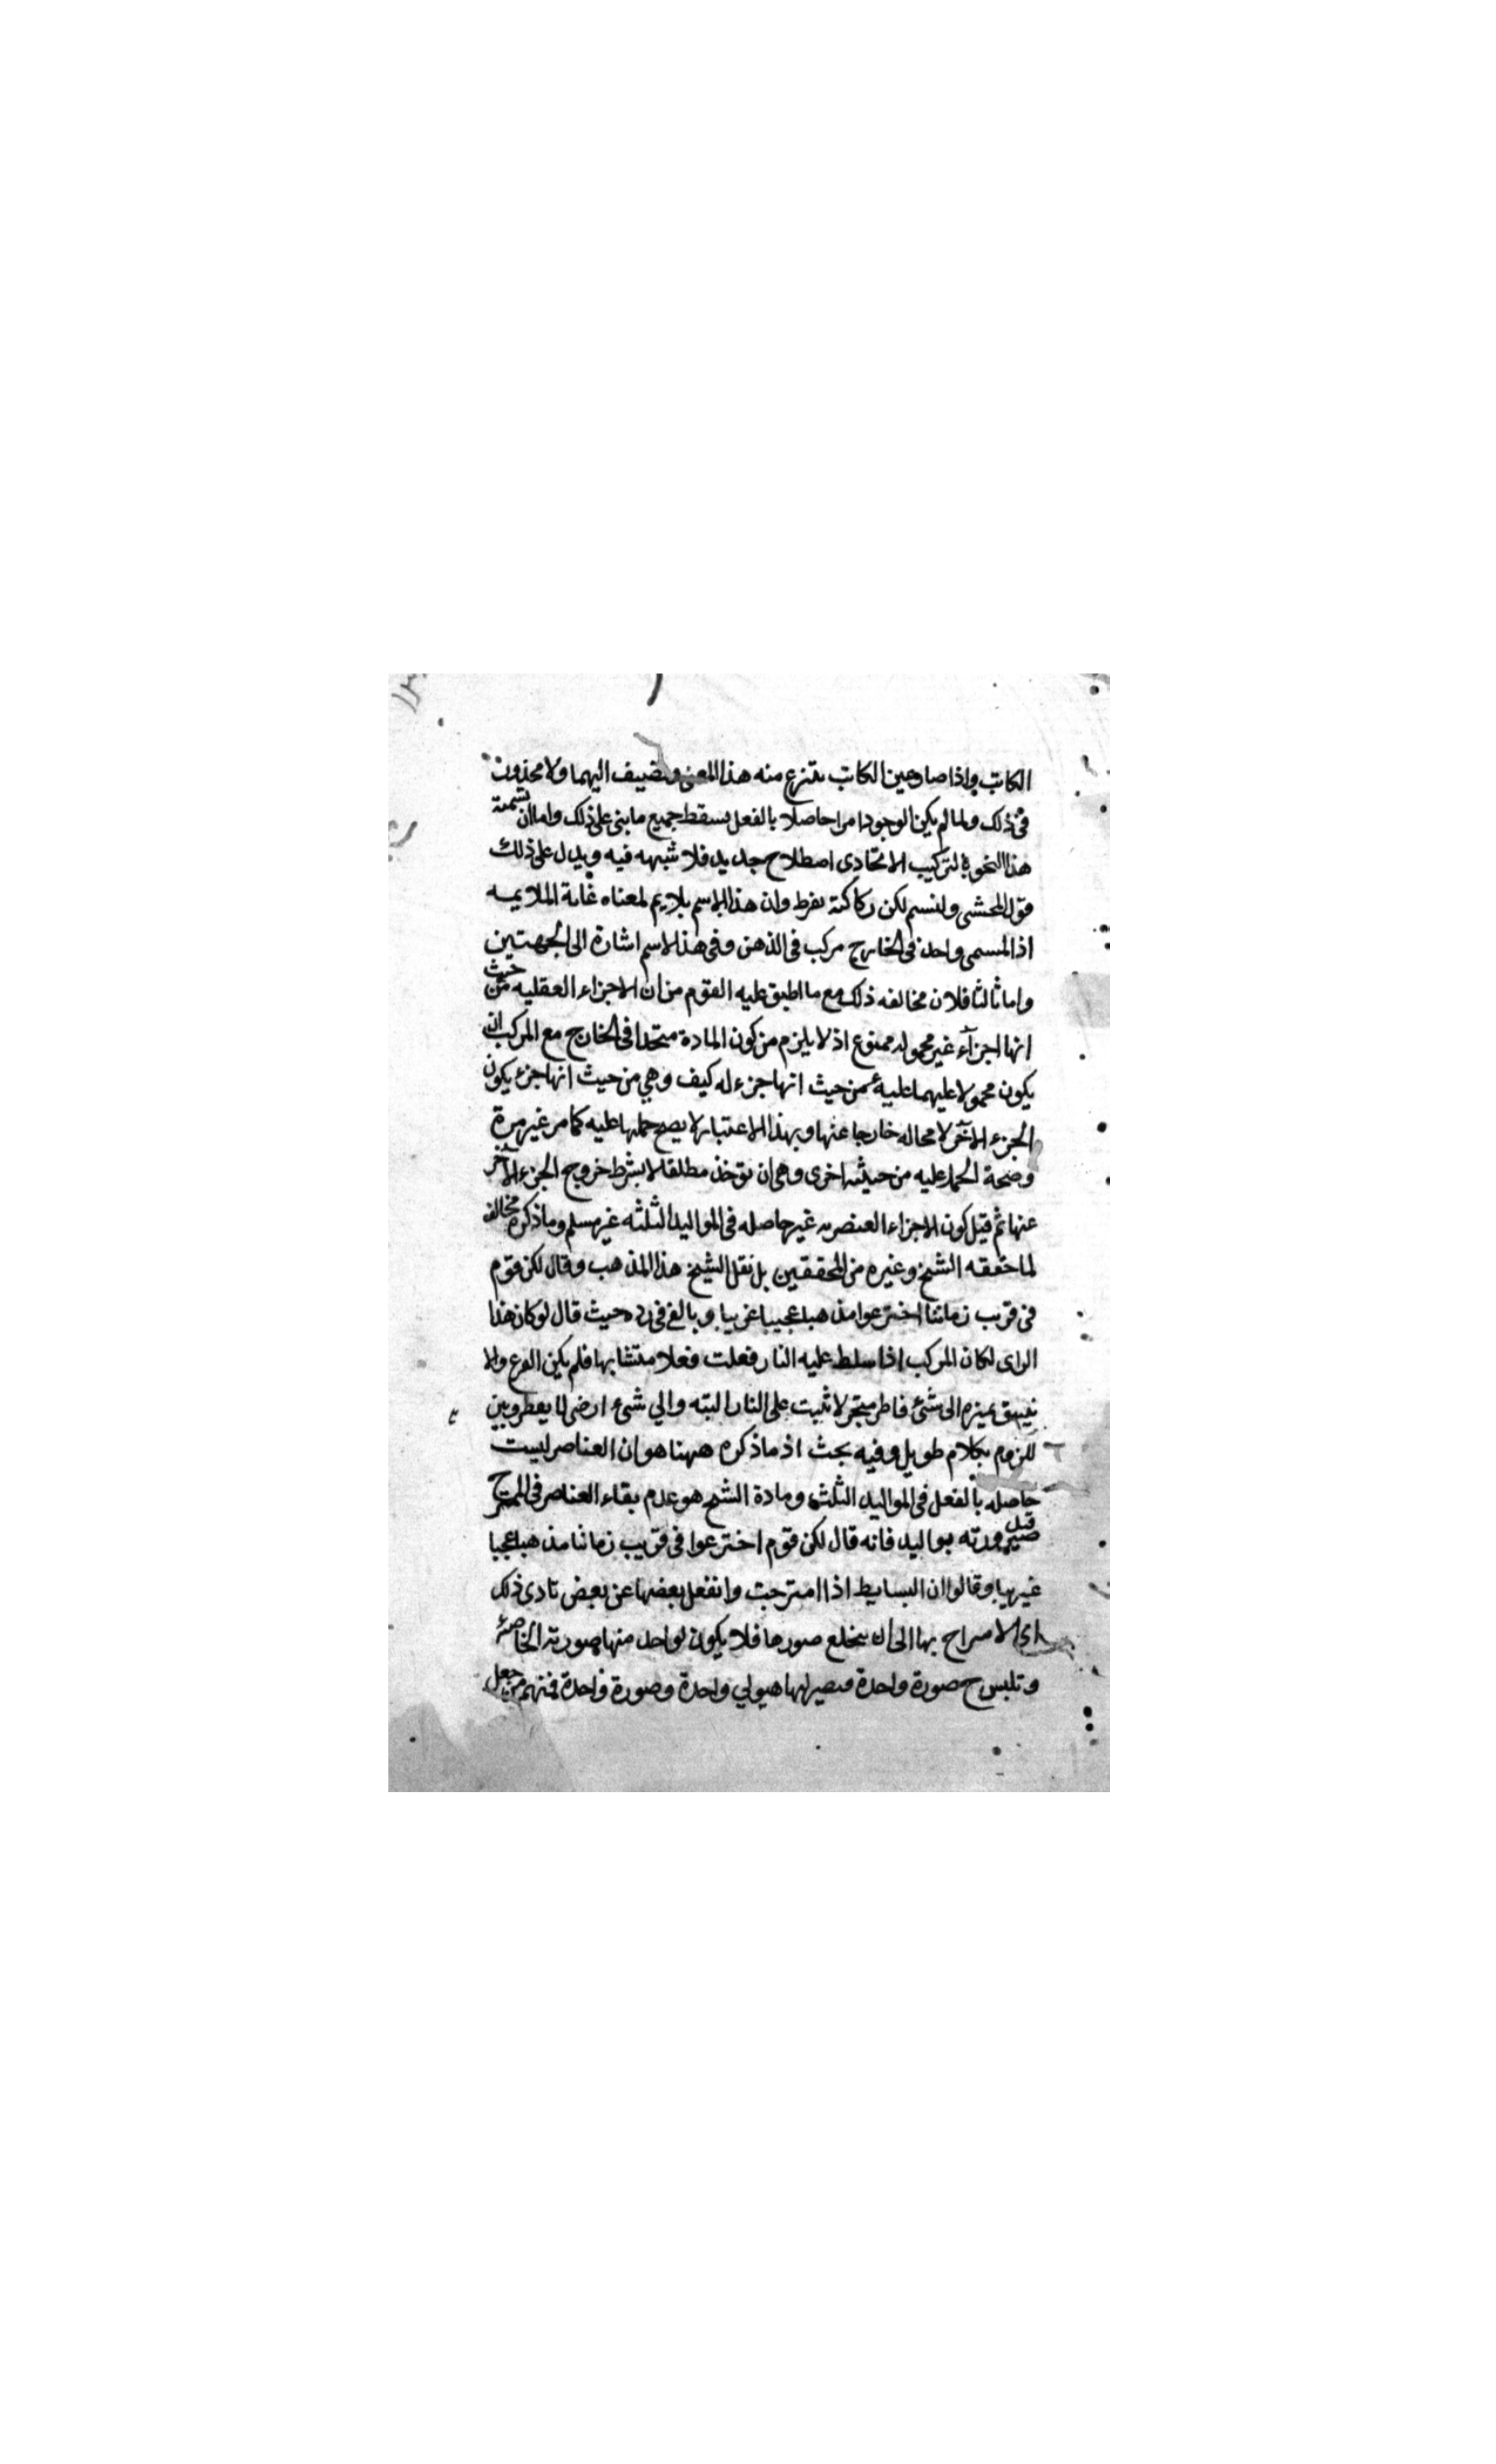 الكاتب واذا صار عين الكاتب ينتزع منه هذا المعنى ويضيف اليهما ولا محذور
فى ذلك ولما لم يكن الوجود امرا حاصلا بالفعل يسقط جميع ما بنى على ذلك واما ان تسمية
هذا النحو بالتركيب الاتحادى اصطلاح جديد فلا شبهه فيه ويدل على ذلك
قول المحشى ولنسم لكن ركاكته بفرط وان هذا الاسم يلايم لمعناه غاية الملايمه
اذ المسمى واحد فى الخارج مركب فى الذهن وفى هذا الاسم اشارة الى الجهتين
واما ثالثا فلان مخالفه ذلك مع ما اطبق عليه القوم من ان الاجزاء العقليه من حيث
انها اجزآء غير محموله ممنوع اذ لا يلزم من كون المادة متحدا فى الخارج مع المركب ان
يكون محمولا عليهما عليه من حيث انها جزء له كيف وهى من حيث انها جزء يكون
الجزء الآخر لا محاله خارجا عنها وبهذا الاعتبار لا يصح حملها عليه كما مر غير مرة
وصحة الحمل عليه من حيثيه اخرى وهى ان يوخذ مطلقا لا بشرط خروج الجزء الآخر
عنها ثم قيل كون الاجزاء العنصريه غير حاصله فى المواليد الثلثه غير مسلم وما ذكره مخالف
لما حققه الشيخ وغيره من المحققين بل نقل الشيخ هذا المذهب وقال لكن قوم
فى قريب زماننا اخترعوا مذهبا عجيبا غريبا وبالغ فى رده حيث قال لو كان هذا
الراى لكان المركب اذا سلط عليه النار فعلت فعلا متشابها فلم يكن القرع والا
نبيق يميزه الى شئ قاطر متبخر لا يثبت على النار البته والى شىء ارضى لا يقطر وبين
للزوم بكلام طويل وفيه بحث اذ ما ذكره ههنا هو ان العناصر ليست
حاصله بالفعل فى المواليد الثلثه وما رده الشيخ هو عدم بقاء العناصر فى الممتزج
قبل صيرورته مواليد فانه قال لكن قوم اخترعوا فى قريب زماننا مذهبا عجبا
غريبا وقالوا ان البسايط اذا امتزجت وانفعل بعضها عن بعض تادى ذلك
اى الامتزاج بها الى ان يخلع صورها فلا يكون لواحد منها صورته الخاصة
وتلبس ح صورة واحدة فيصير لها هيولى واحدة وصورة واحدة فمنهم من جعل